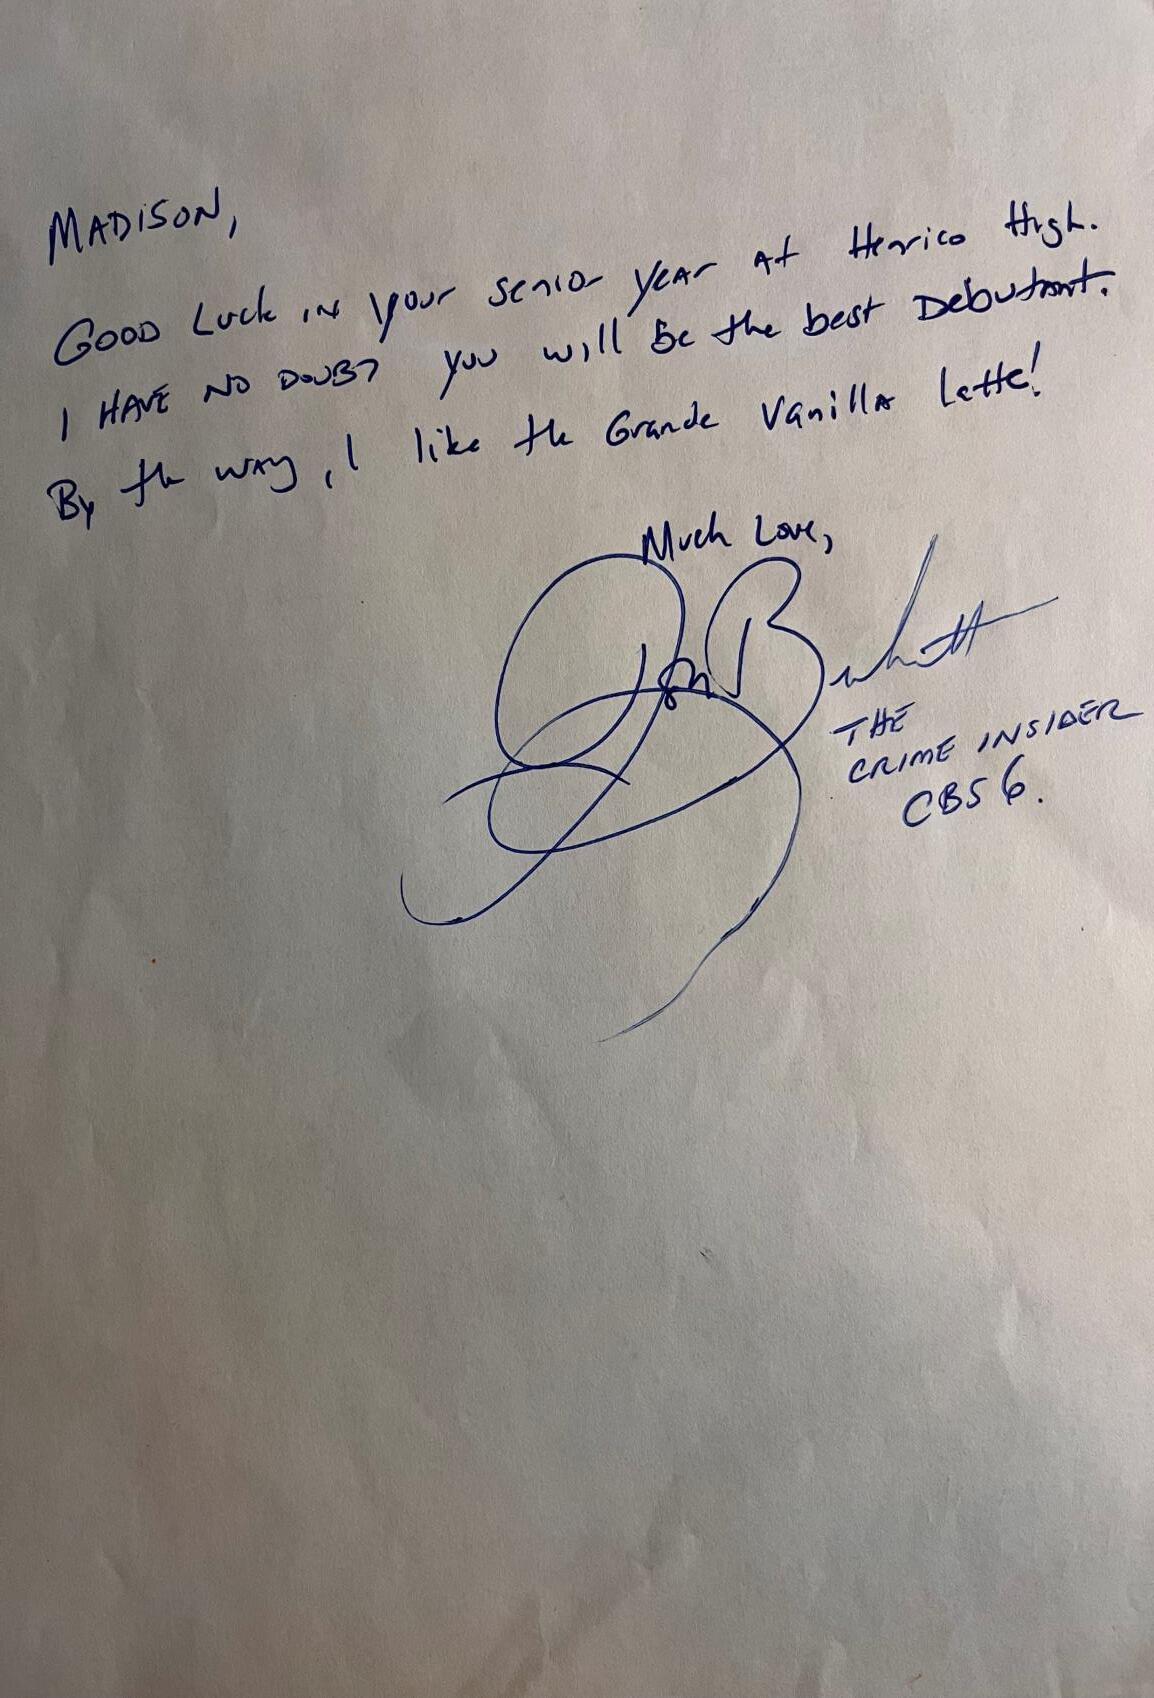 MADISON,
GOOD Luck IN your senior YEAr At Henrico High.
I HAVE NO DOUBT you will be the best Debutant.
By the WAy, I like the Grande VanillA Latte!
Much Love,
Jon B
THE
CRIME INSIDER
CBS 6.